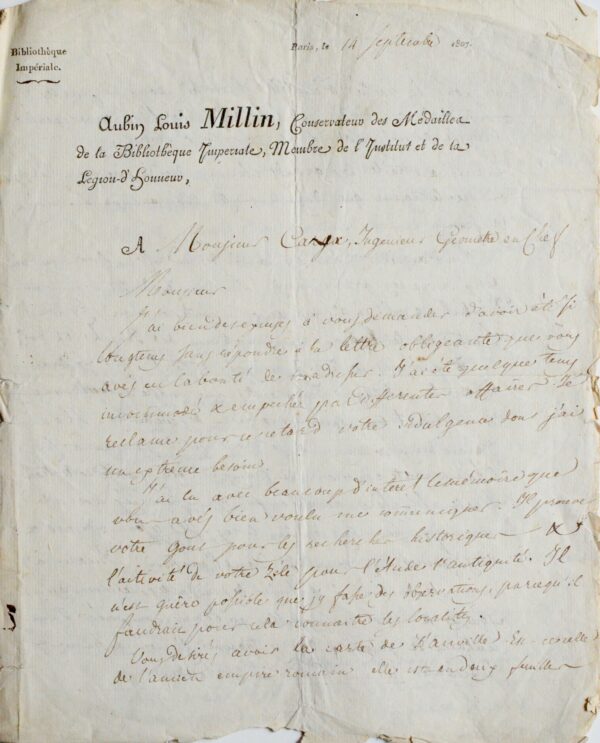 Bibliothèque
Impériale.
Paris, le 14 septembre 1807.
Aubin Louis Millin, Conservateur des Médailles
de la Bibliothèque Impériale, Membre de l'Institut et de la
Légion-d'Honneur,
A Monsieur Ingenieur Géometre en Chef
Monsieur
J'ai bien des excuses à vous demander d'avoir été si
longtems sans répondre à la lettre obligeante que vous
avés eu la bonté de m'adresser. J'ai été quelque tems
incommodé & empeché par differentes affaires. Je
reclame pour ce retard votre indulgence dont j'ai
un extreme besoin.
J'ai lu avec beaucoup d'interêt le mémoire que
vous avés bien voulu me communiquer. Il prouve
votre gout pour les recherches historiques &
l'activité de votre zèle pour l'étude de l'antiquité. Il
n'est guère possible que j'y fasse des observations, parcequ'il
faudrait pour cela connaitre les localités.
Vous desirés avoir la carte de Danville. Est-ce celle
de l'ancien empire romain elle est en deux feuilles